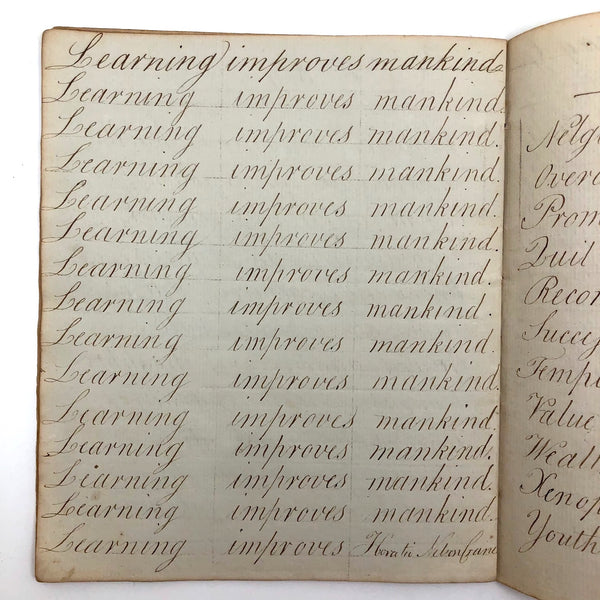 Learning improves mankind.
Learning improves mankind.
Learning improves mankind.
Learning improves mankind.
Learning improves mankind.
Learning improves mankind.
Learning improves mankind.
Learning improves mankind.
Learning improves mankind.
Learning improves mankind.
Learning improves mankind.
Learning improves mankind.
Learning improves mankind.
Learning improves mankind.
Learning improves Horatio Nelson Crane
Prom
Quil
Recor
Succes
Temp
Value
Wealt
Xenop
Youth